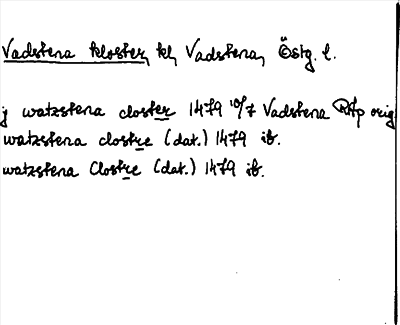 Vadstena kloster, kl, Vadstena, Östg. l.
j watzstena closter 1479 10/7 Vadstena RAp orig
watzstena clostre (dat.) 1479 ib.
watzstena Clostre (dat.) 1479 ib.